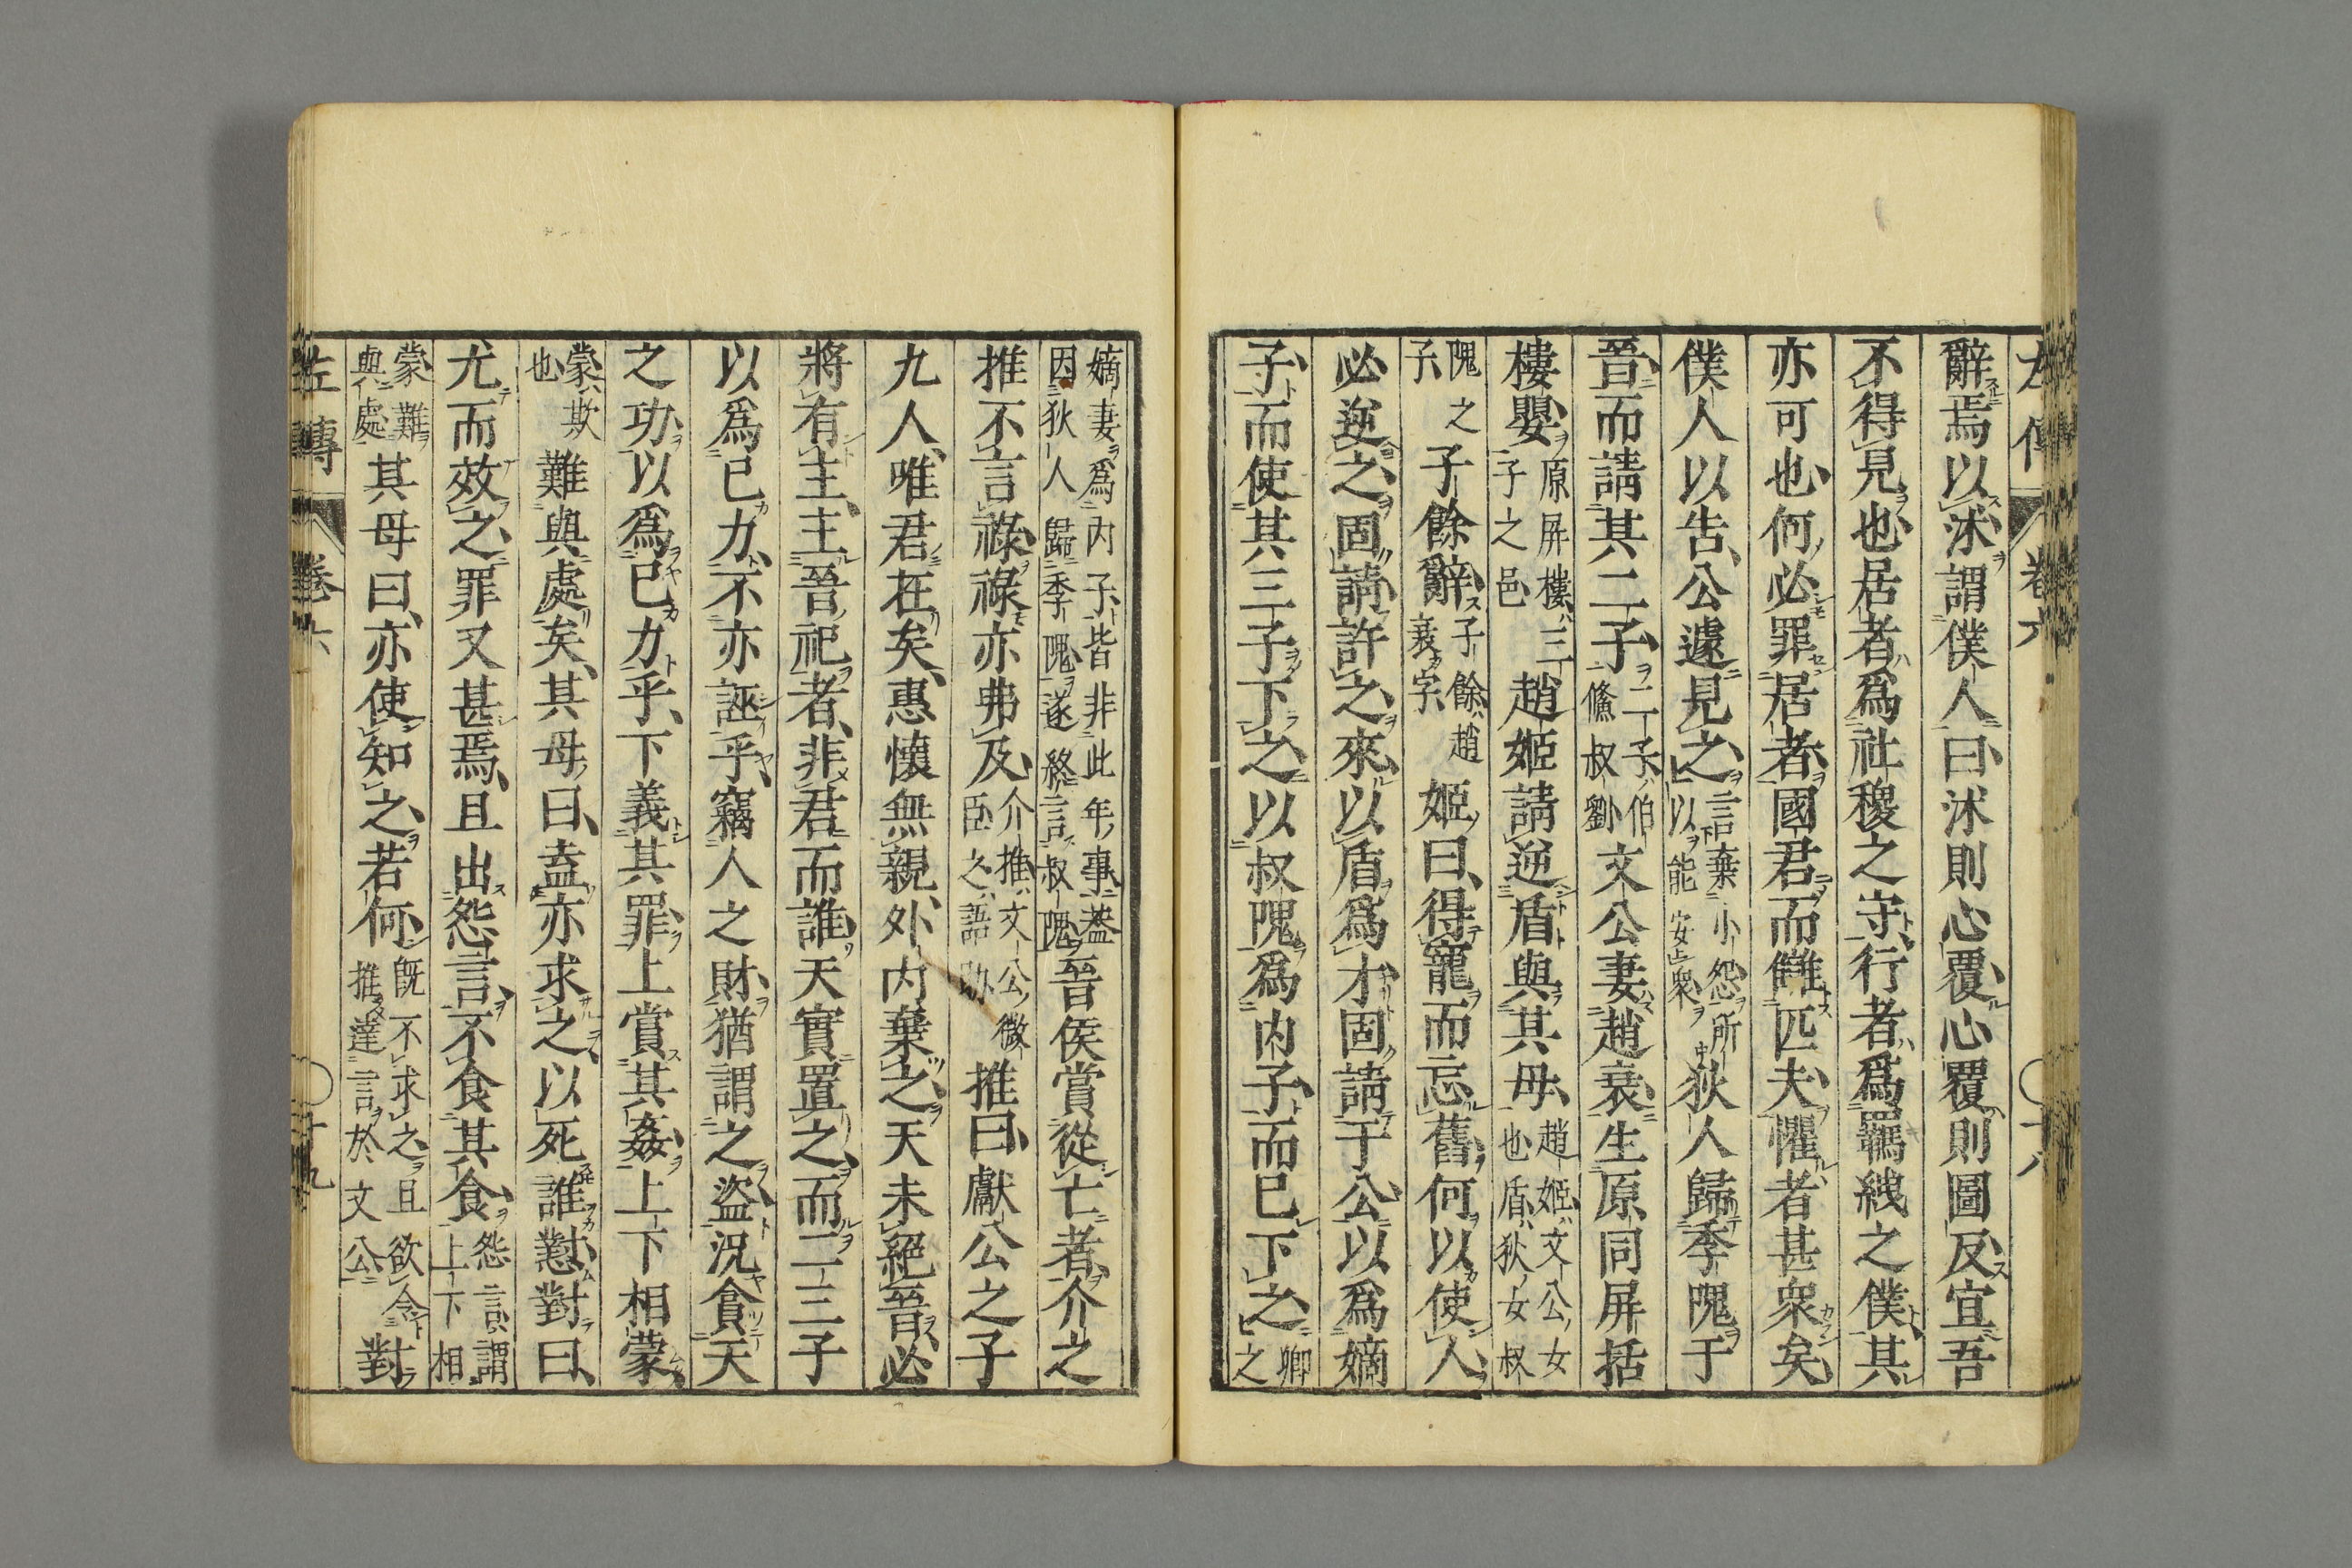 左傳 卷六 十八
辭焉以沐謂僕人曰沐則心覆心覆則圖反宜吾
不得見也居者爲社稷之守行者爲羈絏之僕其
亦可也何必罪居者國君而讎匹夫懼者甚衆矣
僕人以告公遽見之言棄小怨所以能安衆狄人歸季隗于
晉而請其二子二子伯鯈叔劉文公妻趙衰生原同屏括
樓嬰原屏樓三子之邑趙姬請逆盾與其母趙姬文公女也盾狄女叔
隗之子子餘辭子餘趙衰字姬曰得寵而忘舊何以使人
必逆之固請許之來以盾爲才固請于公以爲嫡
子而使其三子下之以叔隗爲内子而已下之卿之
嫡妻爲内子皆非此年事蓋因狄人歸季隗遂終言叔隗晉侯賞從亡者介之
推不言祿祿亦弗及介推文公微臣之語助推曰獻公之子
九人唯君在矣惠懷無親外内棄之天未絕晉必
將有主主晉祀者非君而誰天實置之而二三子
以爲己力不亦誣乎竊人之財猶謂之盜況貪天
之功以爲己力乎下義其罪上賞其姦上下相蒙
蒙欺也難與處矣其母曰盍亦求之以死誰懟對曰
尤而效之罪又甚焉且出怨言不食其食怨言謂上下相
蒙難與處其母曰亦使知之若何既不求之且欲令推達言於文公對
左傳 卷六 十九